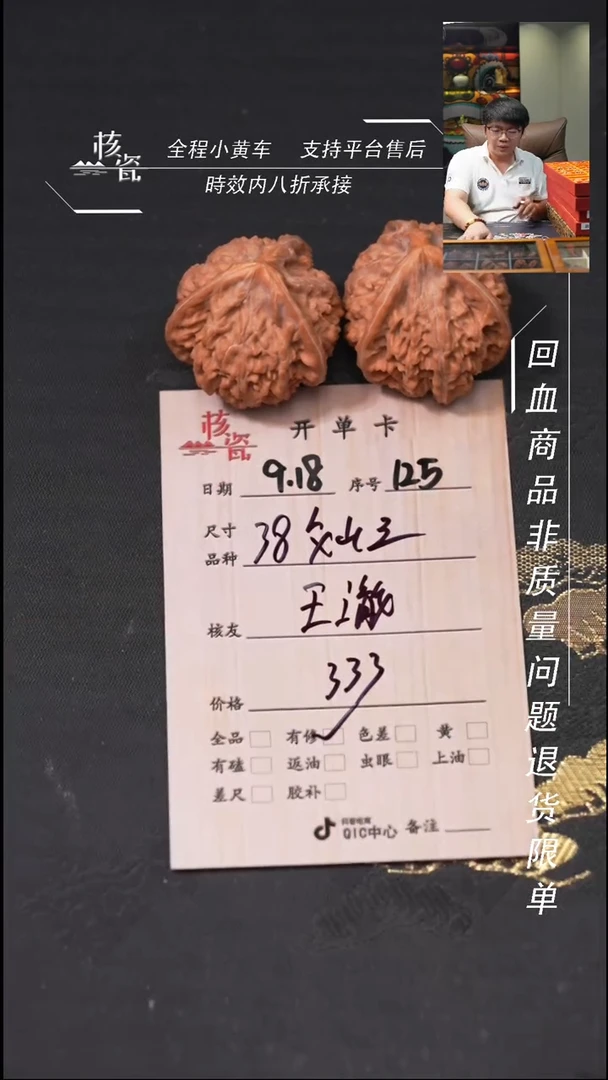 核瓷
全程小黄车 支持平台售后
時效内八折承接
回血商品非质量问题退货限单
核瓷
开单卡
日期 9.18 序号 125
尺寸 38
品种
核友 王
价格 333
全品 有修 色差 黄
有磕 返油 虫眼 上油
差尺 胶补
抖音电商
QIC中心 备注